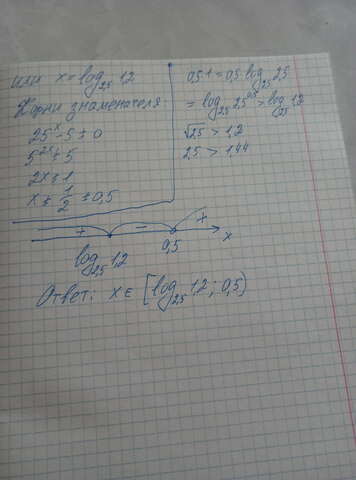 или x = log₂₅ 1,2
Корни знаменателя:
25ˣ - 5 ≠ 0
5²ˣ ≠ 5
2x ≠ 1
x ≠ 1/2 ≠ 0,5
0,5·1 = 0,5·log₂₅ 25
= log₂₅ 25^0,5 > log₂₅ 1,2
√2,5 > 1,2
2,5 > 1,44
+ - +
log₂₅ 1,2 0,5 x
Ответ: x ∈ [log₂₅ 1,2; 0,5)